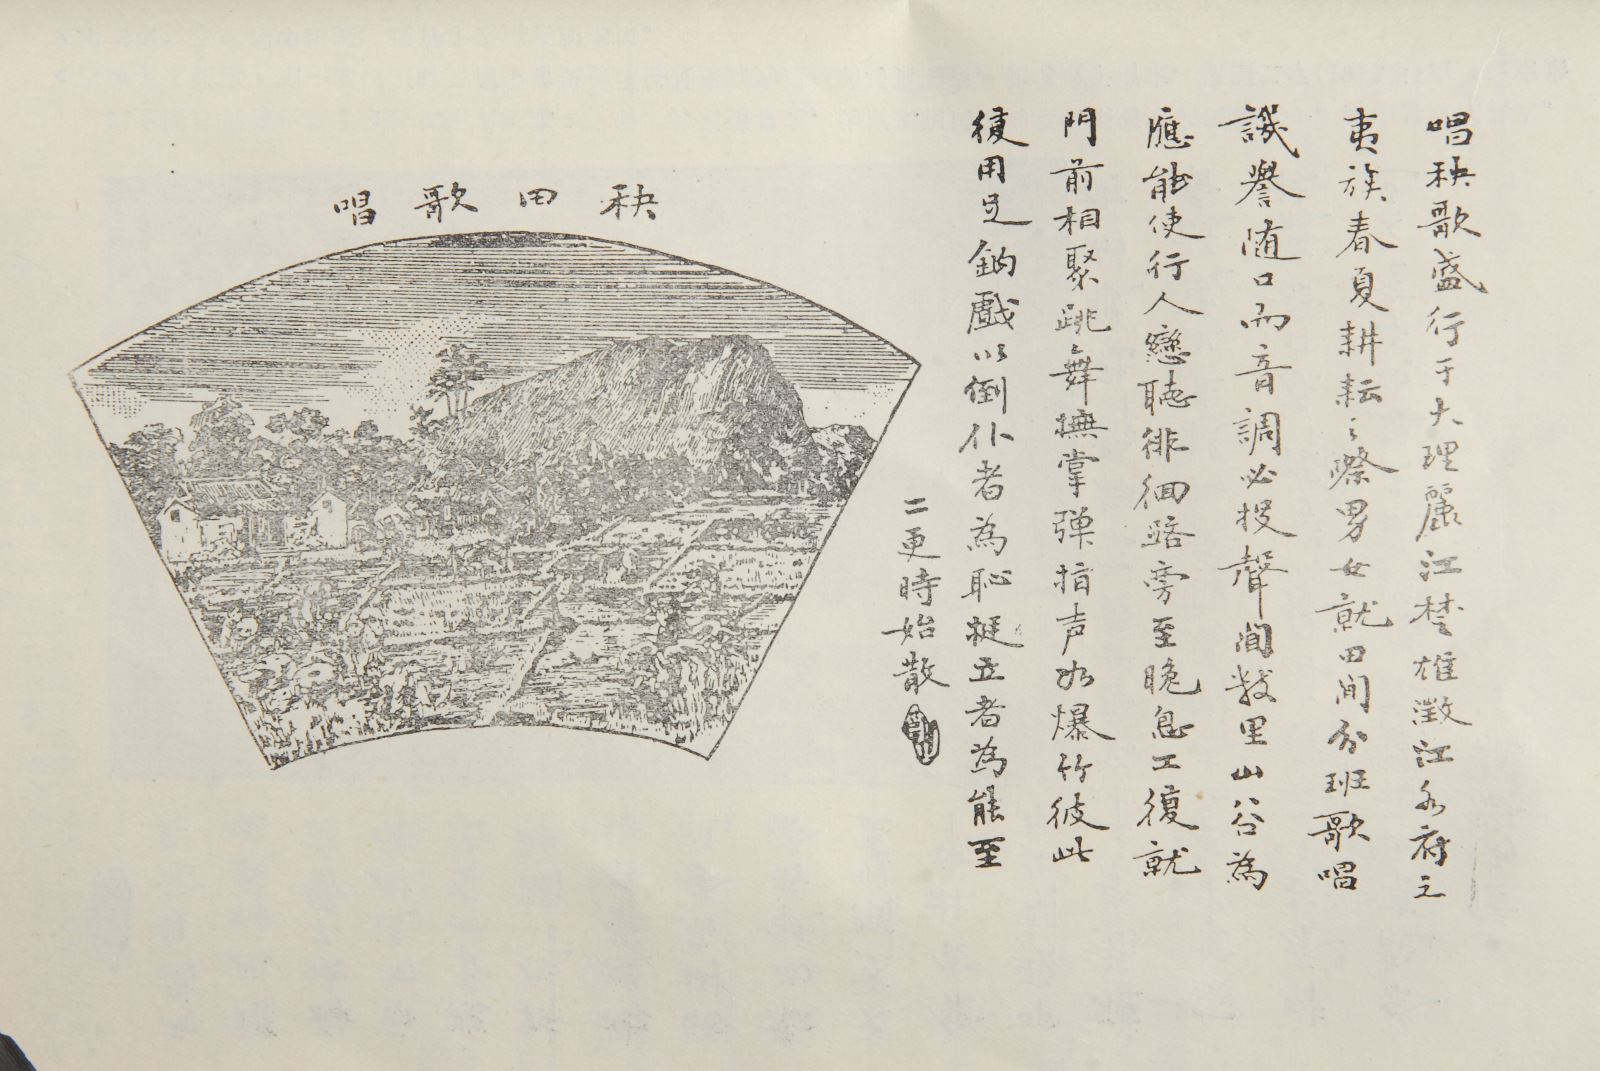 唱秧歌盛行于大理麗江楚雄澂江各府之
夷族春夏耕耘之際男女就田間分班歌唱
譏譽随口而音調必投聲聞数里山谷為
應能使行人戀聽徘徊路旁至晚息工復就
門前相聚跳舞撫掌弹指声如爆竹彼此
復用足鈎戲以倒仆者為恥挺立者為能至
二更時始散
秧田歌唱